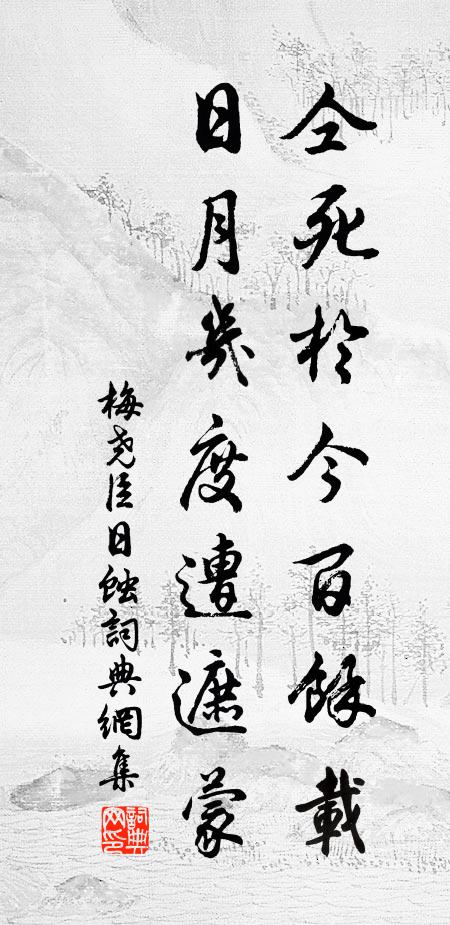 仝死於今百餘載
日月幾度遭遮蒙
梅堯臣日蝕詞典網集
詞典网印